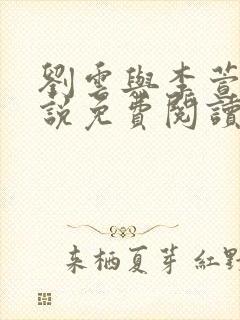 劉雲與李萱
說免費閱讀
来栖夏芽 紅野